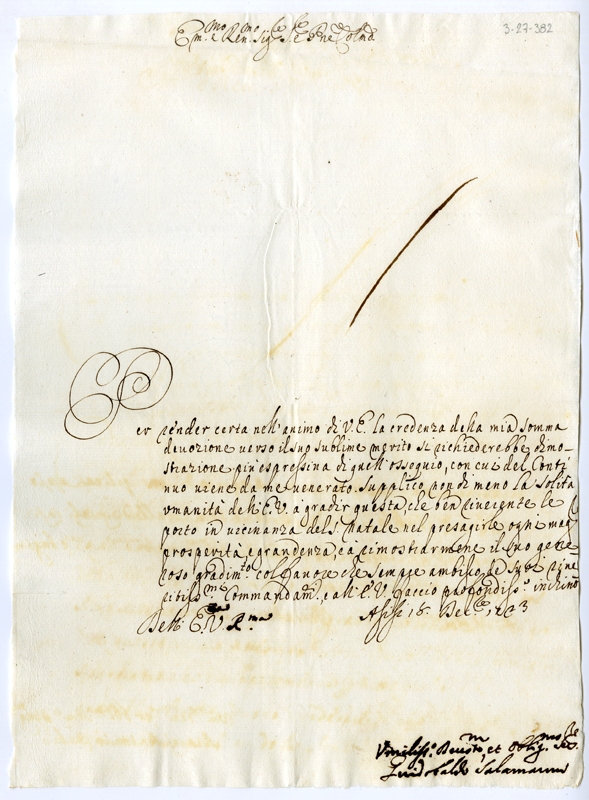 3-27-382
Em.mo e Ren.mo Sig.re
Per render certa nell'animo di V.E. la credenza della mia somma
devozione verso il suo sublime merito si richiederebbe dimo-
strazione più espressiva di quell'ossequio, con cui del conti
nuo viene da me venerato. Supplico non di meno la solita
umanità dell'E.V. a gradir questa, che ben riverente le
porto in vicinanza del S. Natale nel presagirle ogni mag.r
prosperità e grandezza, e a rimostrarmene il suo gene
roso gradim.to col favore che sempre ambisco de suoi rive
ritiss.mi Commandam.ti, e all'E.V. faccio profondiss.o inchino
Dell'E.V. R.ma Asisi 18. Dec.re
Umiliss.o et Oblig.mo Ser.re
Guidobaldo